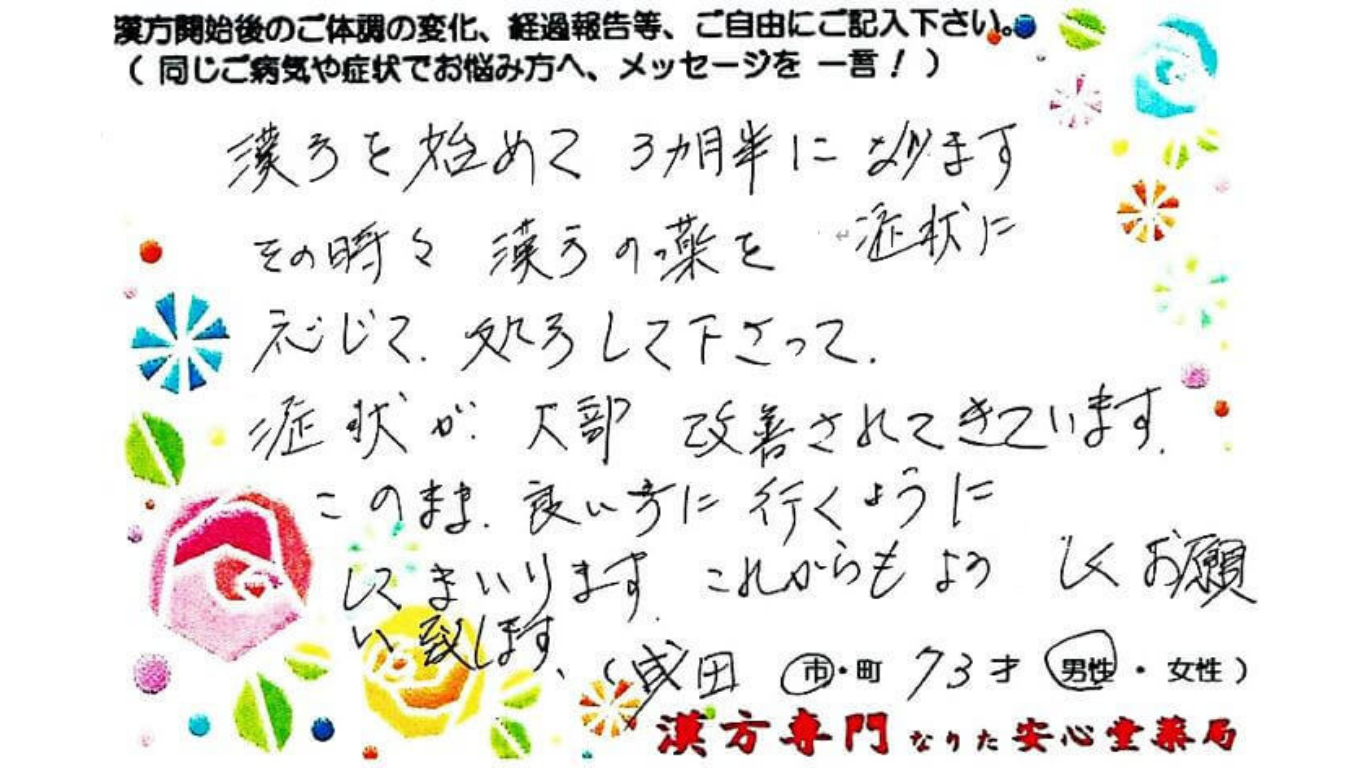 漢方開始後のご体調の変化、経過報告等、ご自由にご記入下さい。
( 同じご病気や症状でお悩み方へ、メッセージを 一言！ )
漢方を始めて 3カ月半に なります
その時々 漢方の薬を 症状に
応じて、処方して下さって、
症状が 大部 改善されてきています。
このまま、良い方に 行くように
してまいります。これからもよろしくお願
い致します。
(成田 市・町 73才 男性・女性)
漢方専門 なりた 安心堂薬局